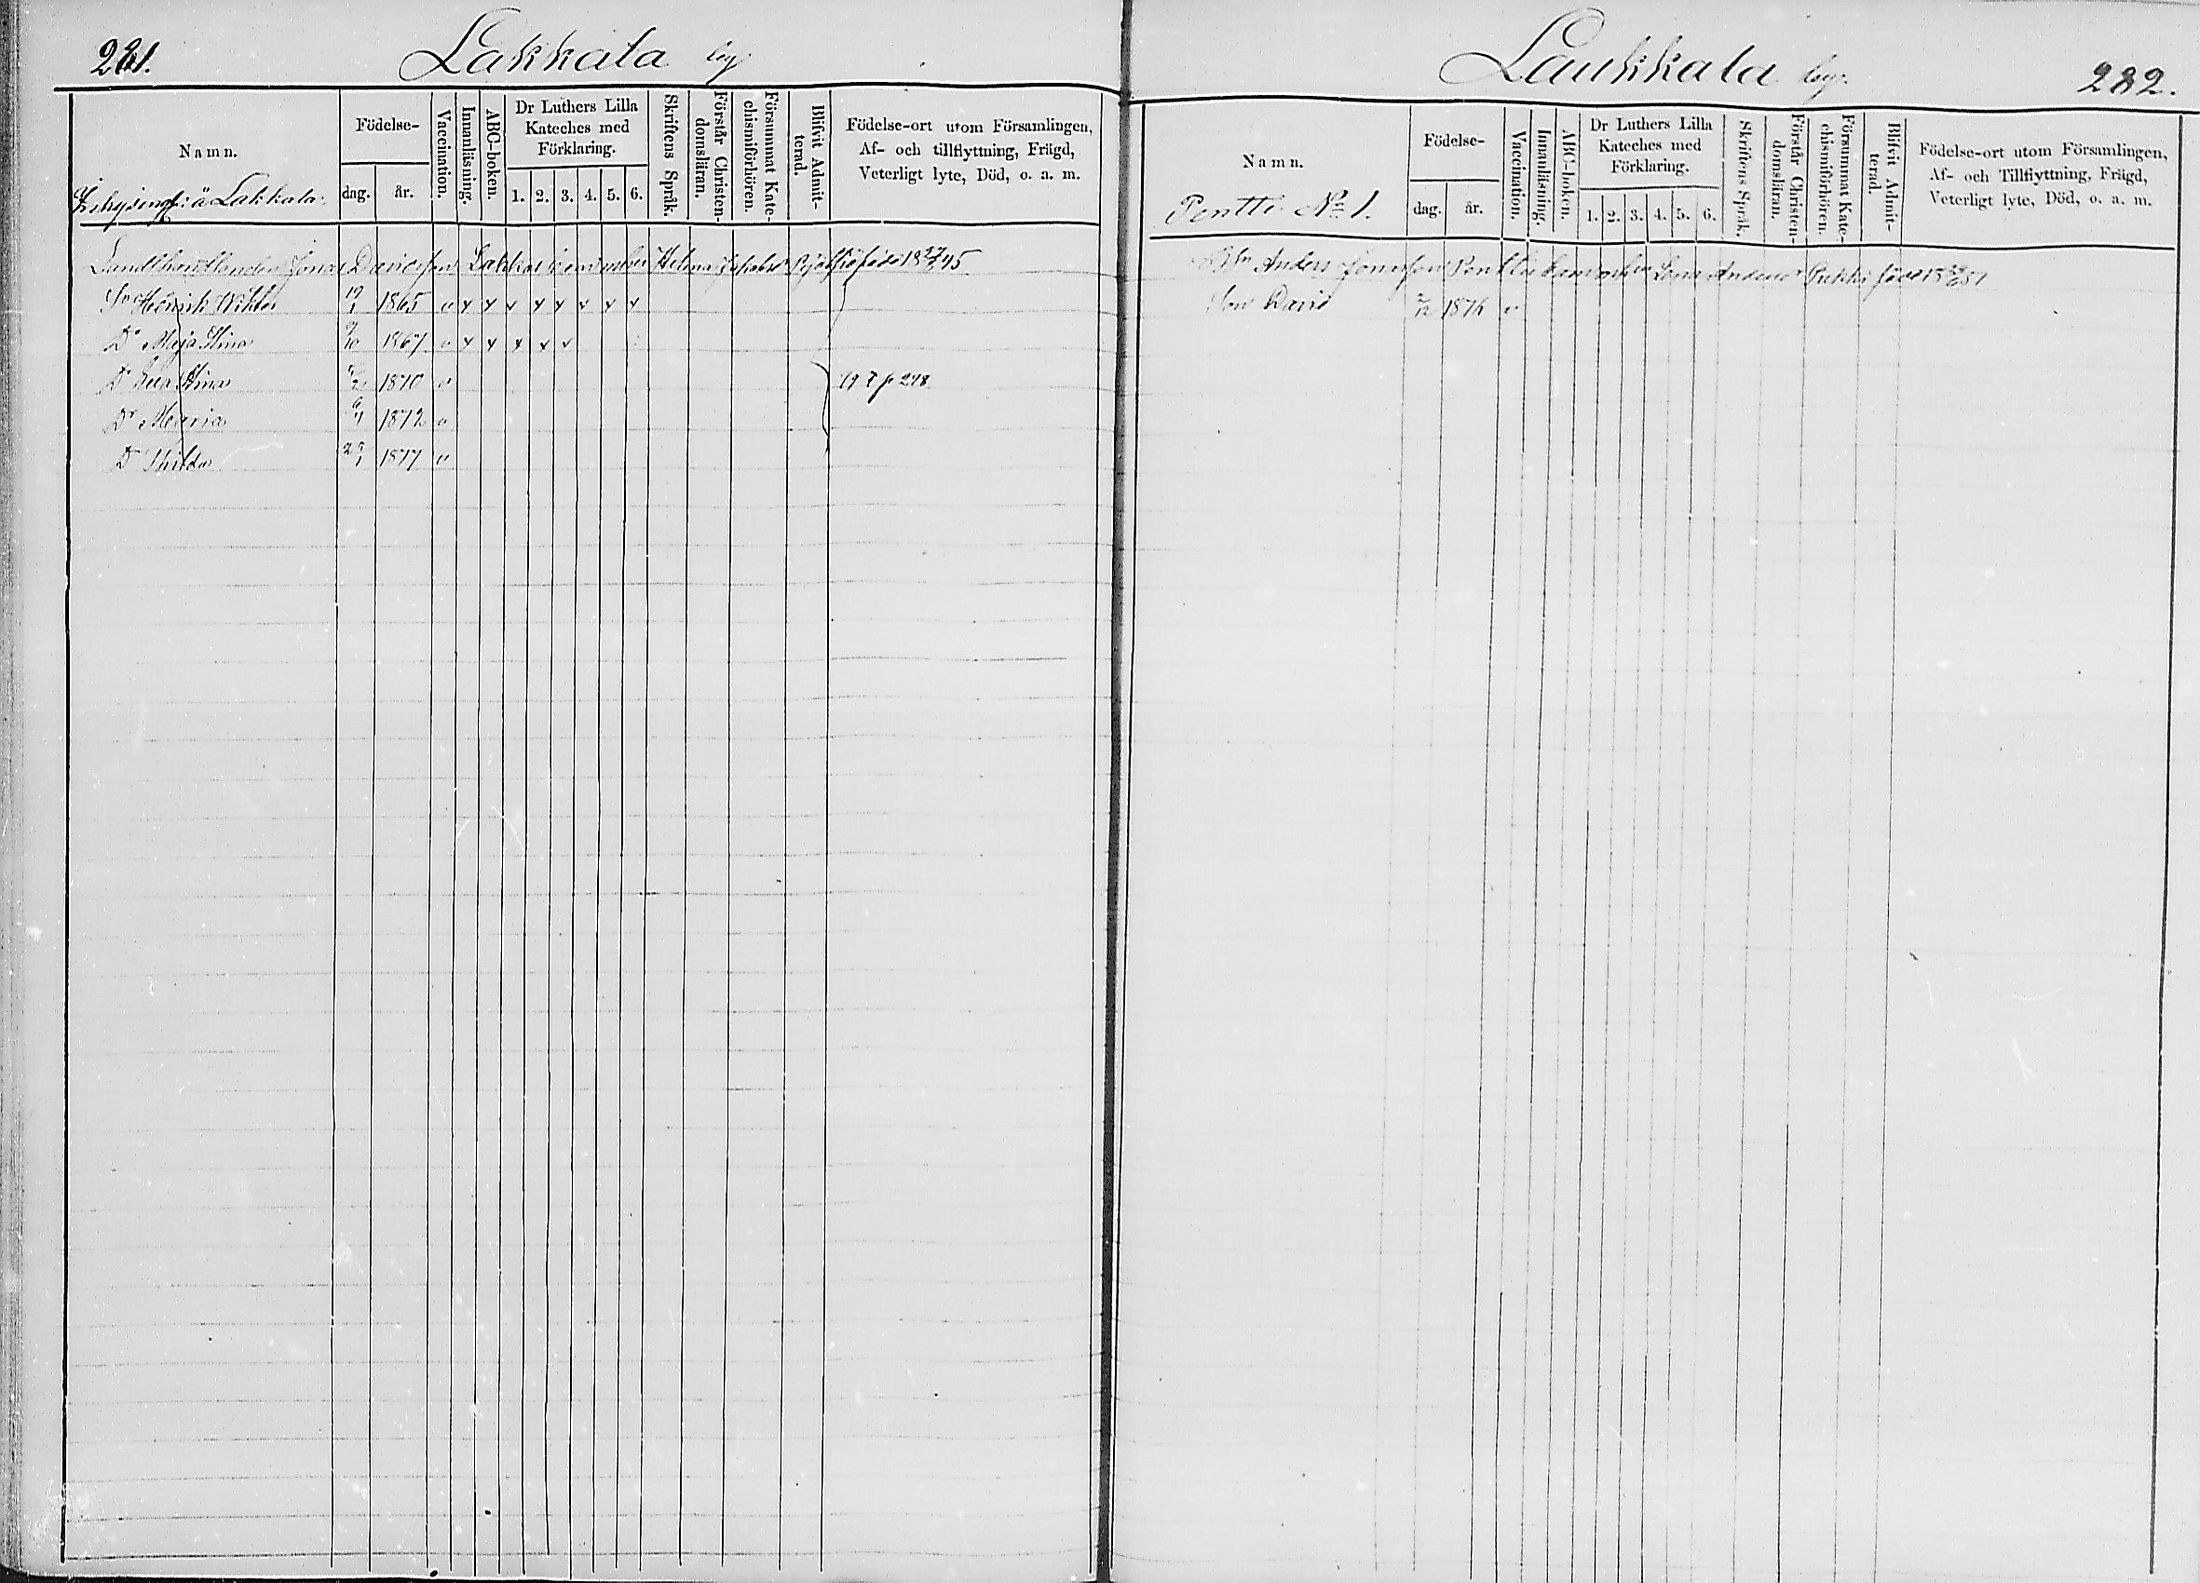 281.
Lakkala by
Namn.
Födelse-
dag.
år.
Vaccination.
Innanläsning.
ABC-boken.
Dr Luthers Lilla
Kateches med
Förklaring.
1. 2. 3. 4. 5. 6.
Skriftens Språk.
Förstår Christen-
domsläran.
Försummat Kate-
chismiförhören.
Blifvit Admit-
terad.
Födelse-ort utom Församlingen,
Af- och tillflyttning, Frägd,
Veterligt lyte, Död, o. a. m.
å Lakkala.
Jonas Davidson Lakkala Helena
Sn Henrik Wiktor 19/1 1865 v x x v x x x x x
Dr Maja Stina 9/10 1867 v x x x x v
Dr Stina 1870 v p 248
Dr Maria 1872 v
Dr Hilda 1877 v
Laukkala by.
282.
Namn.
Pentti No 1.
Födelse-
dag.
år.
Vaccination.
Innanläsning.
ABC-boken.
Dr Luthers Lilla
Kateches med
Förklaring.
1. 2. 3. 4. 5. 6.
Skriftens Språk.
Förstår Christen-
domsläran.
Försummat Kate-
chismiförhören.
Blifvit Admit-
terad.
Födelse-ort utom Församlingen,
Af- och Tillflyttning, Frägd,
Veterligt lyte, Död, o. a. m.
Anders Jonasson Pentti Lena Anders
Son David 1876 v